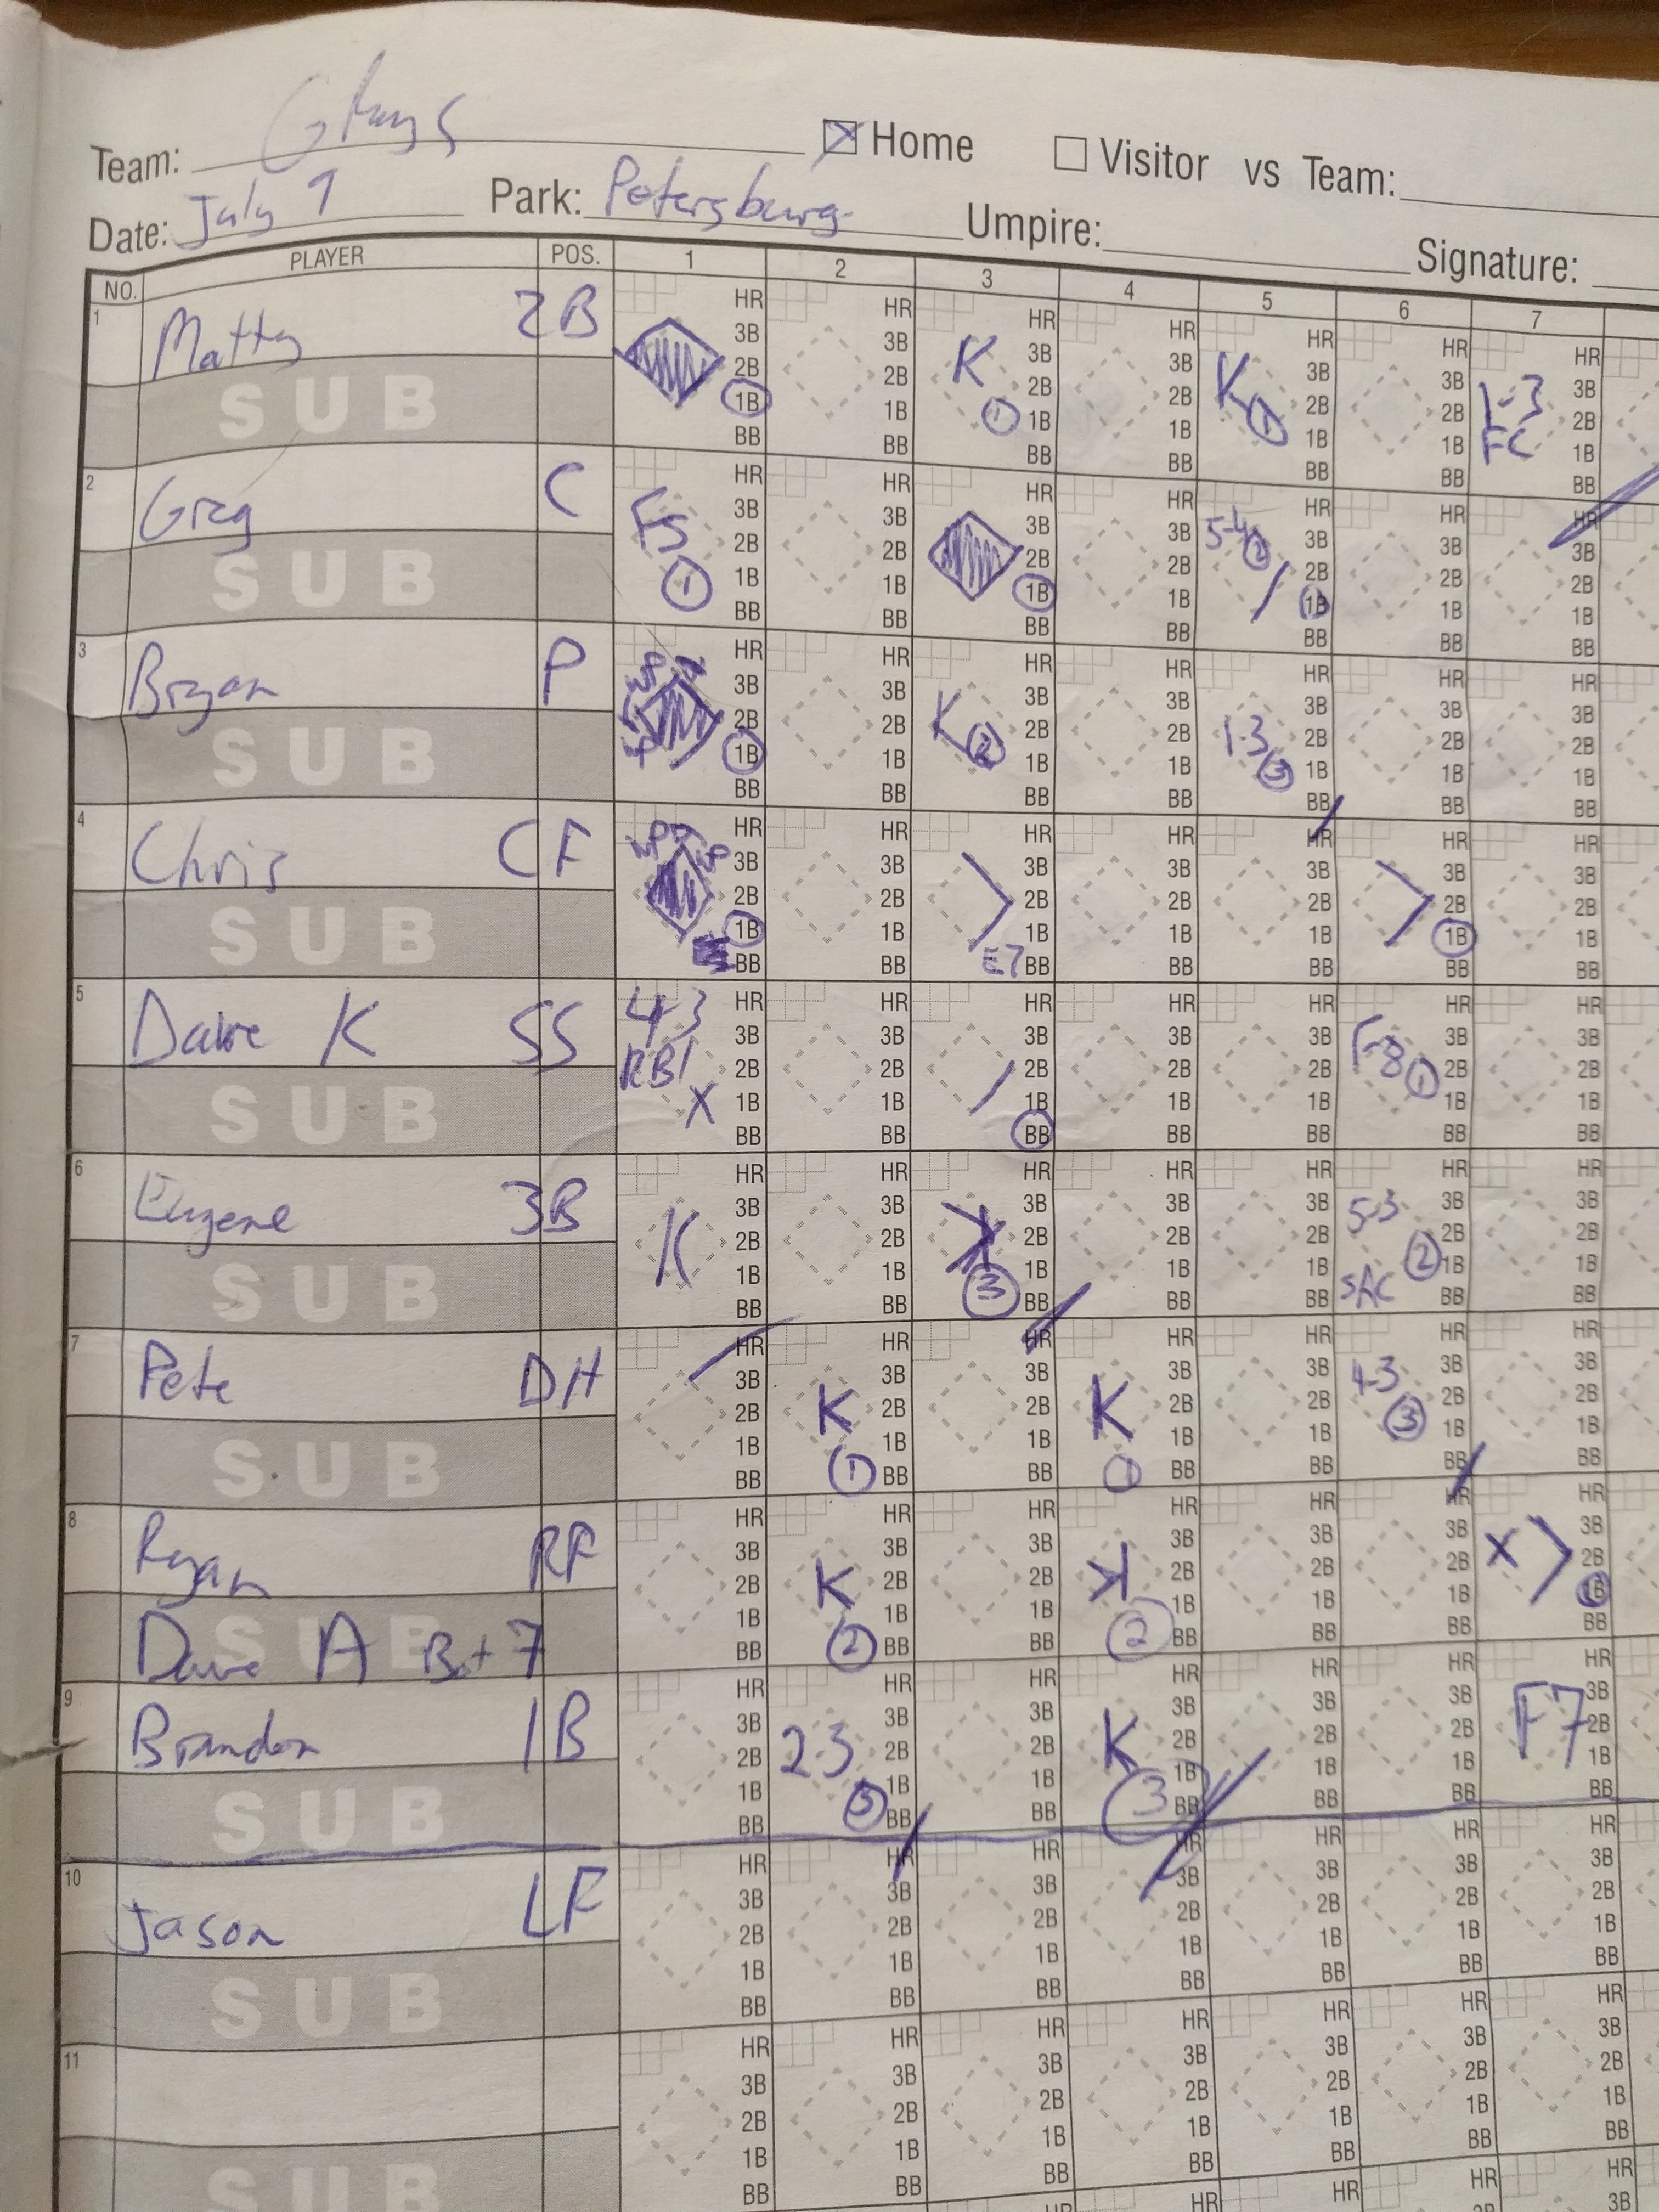 Team: Grays Home Visitor vs Team:
Date: July 9 Park: Petersburg Umpire: Signature:
NO. PLAYER POS. 1 2 3 4 5 6 7
1 Matty 2B HR 3B 2B 1B BB HR 3B 2B 1B BB K 1 HR 3B 2B 1B BB HR 3B 2B 1B BB K 1 HR 3B 2B 1B BB HR 3B 2B 1B BB 1-3 FC HR 3B 2B 1B BB
SUB
2 Greg C F5 1 HR 3B 2B 1B BB HR 3B 2B 1B BB HR 3B 2B 1B BB HR 3B 2B 1B BB 5-4 2 HR 3B 2B 1B BB HR 3B 2B 1B BB HR 3B 2B 1B
SUB
3 Bryan P WP HR 3B 2B 1B BB HR 3B 2B 1B BB K 2 HR 3B 2B 1B BB HR 3B 2B 1B BB 1-3 3 HR 3B 2B 1B BB HR 3B 2B 1B BB HR 3B 2B 1B BB
SUB
4 Chris CF WP WP HR 3B 2B 1B BB HR 3B 2B 1B BB E7 HR 3B 2B 1B BB HR 3B 2B 1B BB HR 3B 2B 1B BB HR 3B 2B 1B BB HR 3B 2B 1B BB
SUB
5 Dave K SS 4-3 RBI X HR 3B 2B 1B BB HR 3B 2B 1B BB HR 3B 2B 1B BB HR 3B 2B 1B BB HR 3B 2B 1B BB F-8 1 HR 3B 2B 1B BB HR 3B 2B 1B BB
SUB
6 Eugene 3B K HR 3B 2B 1B BB HR 3B 2B 1B BB K 3 HR 3B 2B 1B BB HR 3B 2B 1B BB HR 3B 2B 1B BB 5-3 2 SAC HR 3B 2B 1B BB HR 3B 2B 1B BB
SUB
7 Pete DH HR 3B 2B 1B BB K 1 HR 3B 2B 1B BB HR 3B 2B 1B BB K 1 HR 3B 2B 1B BB HR 3B 2B 1B BB 4-3 3 HR 3B 2B 1B BB HR 3B 2B 1B BB
SUB
8 Ryan RF HR 3B 2B 1B BB K 2 HR 3B 2B 1B BB HR 3B 2B 1B BB K 2 HR 3B 2B 1B BB HR 3B 2B 1B BB HR 3B 2B 1B BB X HR 3B 2B 1B BB
SUB Dave A Bot 7
9 Brandon 1B HR 3B 2B 1B BB 23 3 HR 3B 2B 1B BB HR 3B 2B 1B BB K 3 HR 3B 2B 1B BB HR 3B 2B 1B BB HR 3B 2B 1B BB F7 HR 3B 2B 1B BB
SUB
10 Jason LF HR 3B 2B 1B BB HR 3B 2B 1B BB HR 3B 2B 1B BB HR 3B 2B 1B BB HR 3B 2B 1B BB HR 3B 2B 1B BB HR 3B 2B 1B BB
SUB
11 HR 3B 2B 1B BB HR 3B 2B 1B BB HR 3B 2B 1B BB HR 3B 2B 1B BB HR 3B 2B 1B BB HR 3B 2B 1B BB HR 3B 2B 1B BB
SUB HR HR HR HR 3B